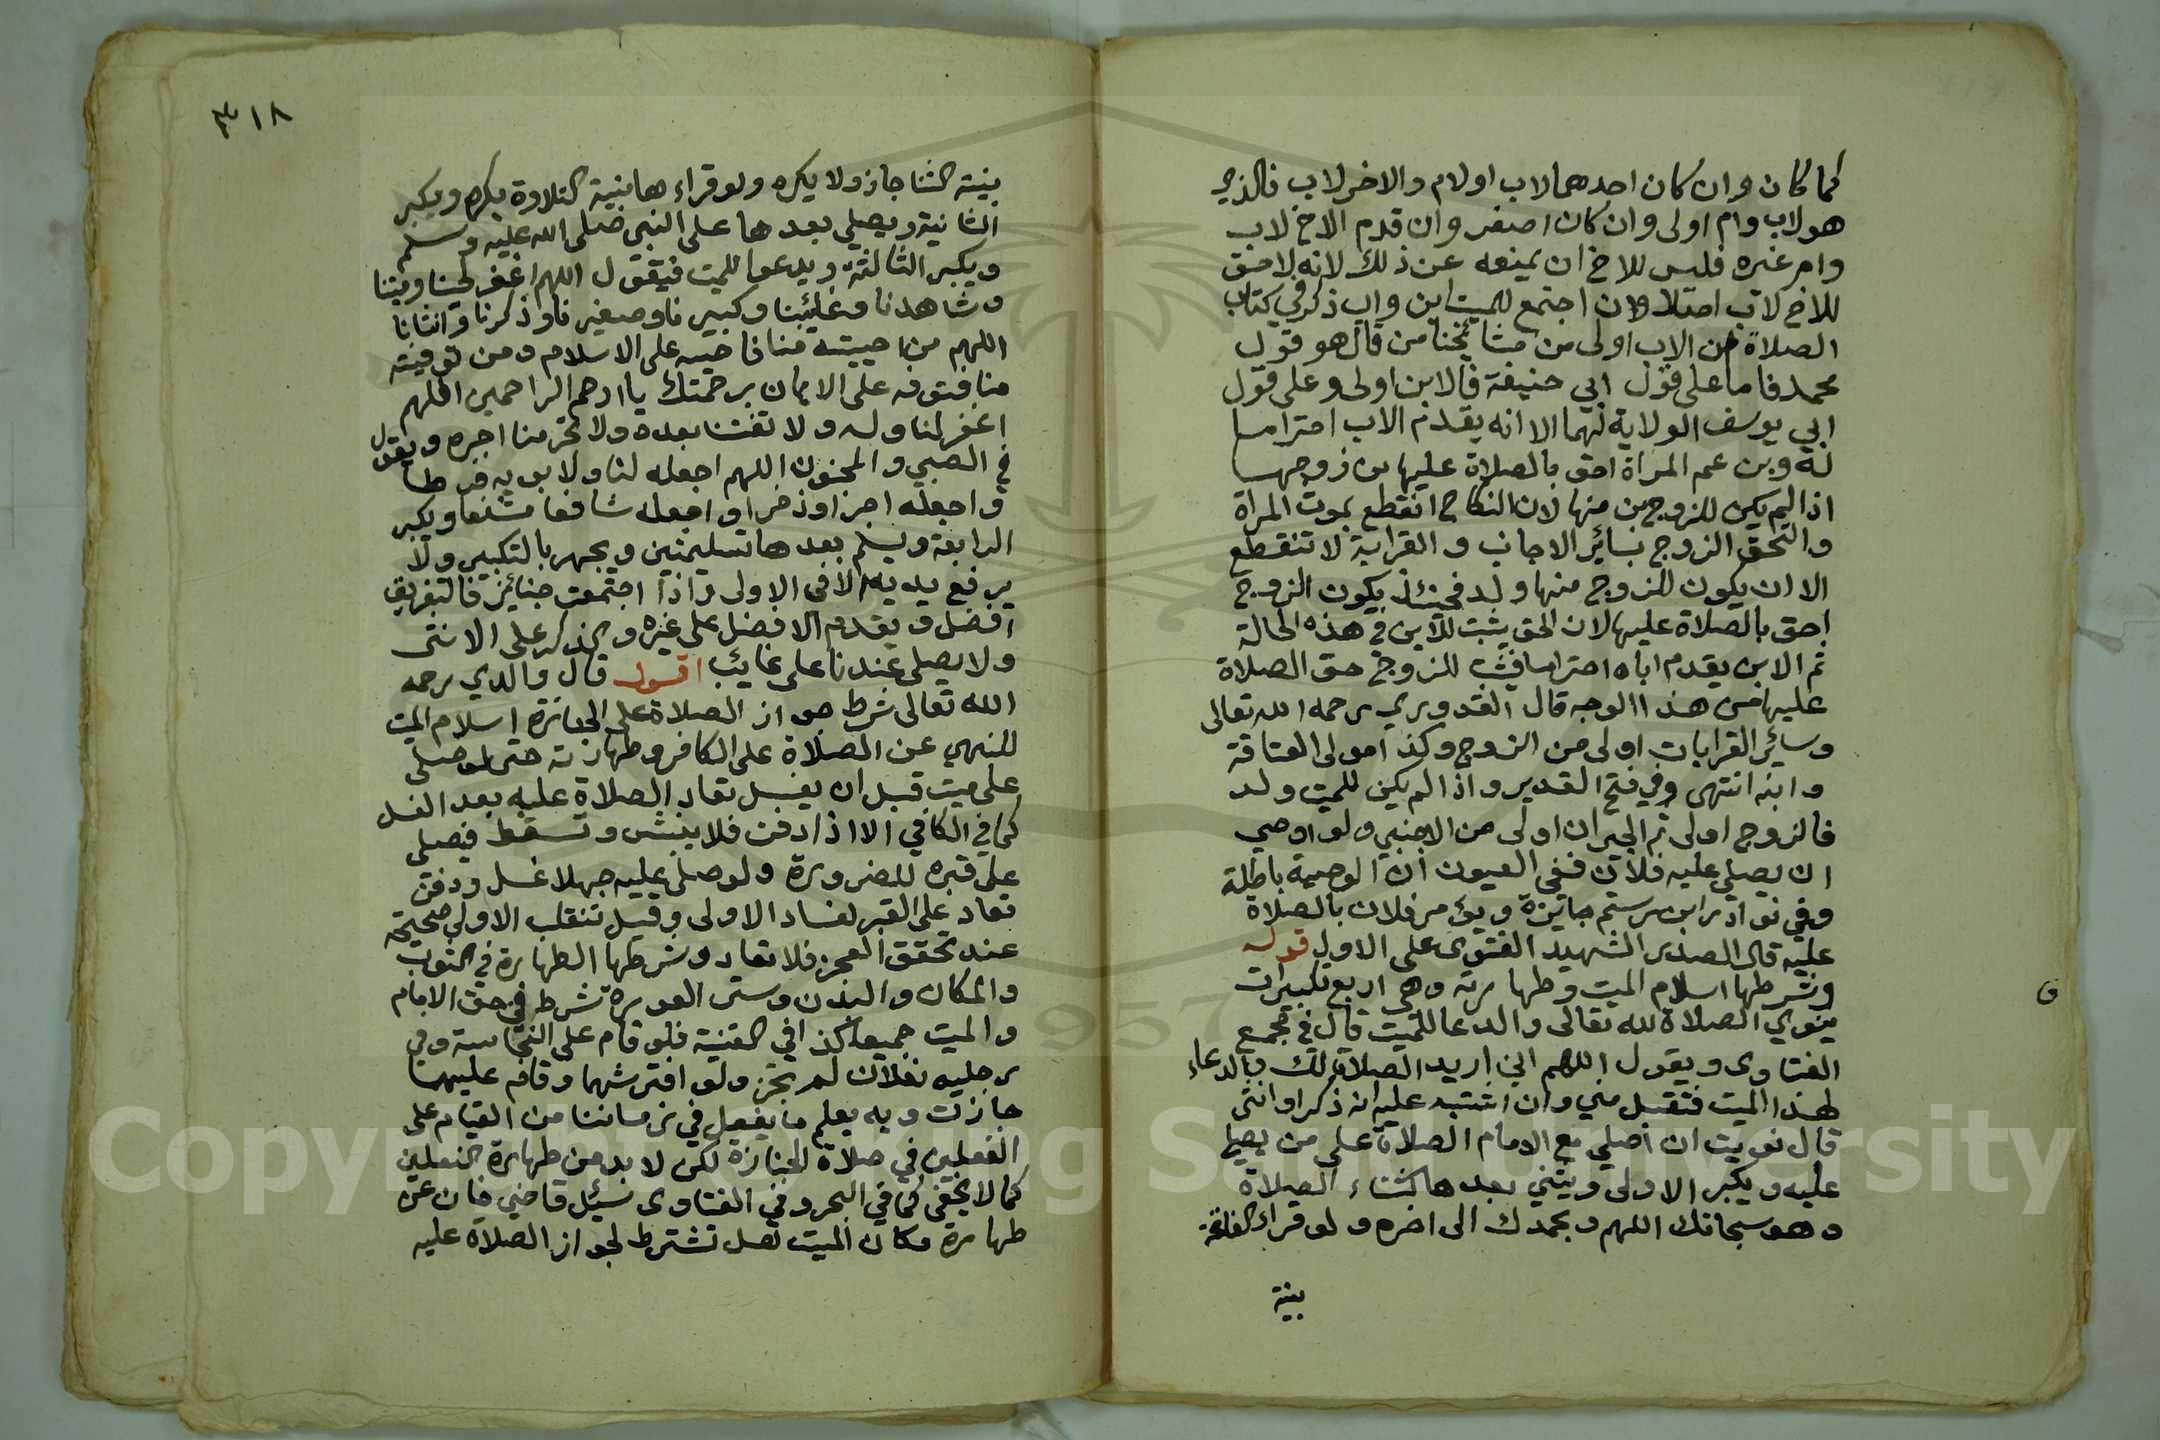 كما كان وان كان احدهما لاب اولام والاخر لاب فالذي
هو لاب وام اولى وان كان اصغر وان قدم الاخ لاب
وام غيره فليس للاخ ان يمنعه عن ذلك لانه لا حق
للاخ لاب اصلا وان اجتمع للميت ابن واب ذكر في كتاب
الصلاة ان الاب اولى من مشائخنا من قال هو قول
محمد فاما على قول ابي حنيفة فالابن اولى وعلى قول
ابي يوسف الولاية لهما الا انه يقدم الاب احتراما
له وبن عم المراة احق بالصلاة عليها من زوجها
اذا لم يكن للزوج بن منها لان النكاح انقطع بموت المراة
والتحق الزوج بسائر الاجانب والقرابة لا تنقطع
الا ان يكون للزوج منها ولد فحينئذ يكون الزوج
احق بالصلاة عليها لان الحق يثبت للابن في هذه الحالة
ثم الابن يقدم اباه احتراما فيثبت للزوج حق الصلاة
عليها من هذا الوجه قال القدوري رحمه الله تعالى
وسائر القرابات اولى من الزوج وكذا مولى العتاقة
وابنه انتهى وفي فتح القدير واذا لم يكن للميت ولد
فالزوج اولى ثم الجيران اولى من الاجنبي ولو اوصى
ان يصلي عليه فلان ففي العيون ان الوصية باطلة
وفي نوادر ابن رستم جايزة ويؤمر فلان بالصلاة
عليه قال الصدر الشهيد الفتوى على الاول قوله
وشرطها اسلام الميت وطهارته وهي اربع تكبيرات
ينوي الصلاة لله تعالى والدعا للميت قال في مجمع
الفتاوى ويقول اللهم اني اريد الصلاة لك وبالدعاء
لهذا الميت فتقبل مني وان اشتبه عليه انه ذكر او انثى
قال نويت ان اصلي مع الامام الصلاة على من يصلي
عليه ويكبر الاولى ويثني بعدها كثناء الصلاة
وهو سبحانك اللهم وبحمدك الى اخره ولو قراء الفاتحة
بنية
٣١٨
بنية الثنا جاز ولا يكره ولو قراءها بنية التلاوة يكره ويكبر
الثانية ويصلي بعدها على النبي صلى الله عليه وسلم
ويكبر الثالثة ويدعوا للميت فيقول اللهم اغفر لحينا وميتنا
وشاهدنا وغائبنا وكبيرنا وصغيرنا وذكرنا وانثانا
اللهم من احييته منا فاحيه على الاسلام ومن توفيته
منا فتوفه على الايمان برحمتك يا ارحم الراحمين اللهم
اغفر لنا وله ولا تفتنا بعده ولا تحرمنا اجره ويقول
في الصبي والمجنون اللهم اجعله لنا ولابويه فرطا
واجعله اجرا وذخرا واجعله شافعا مشفعا ويكبر
الرابعة ويسلم بعدها تسليمتين ويجهر بالتكبير ولا
يرفع يديه الا في الاولى واذا اجتمعت جنائز فالتفريق
افضل ويقدم الافضل على غيره والذكر على الانثى
ولا يصلى عندنا على غايب اقول قال والدي رحمه
الله تعالى شرط جواز الصلاة على الجنازة اسلام الميت
للنهي عن الصلاة على الكافر وطهارته حتى لو صلى
على ميت قبل ان يغسل تعاد الصلاة عليه بعد الغسل
كما في الكافي الا اذا دفن فلا ينبش وتسقط فيصلى
على قبره للضرورة ولو صلى عليه جهلا غسل ودفن
تعاد على القبر لفساد الاولى وقيل تنقلب الاولى صحيحة
عند تحقق العجز فلا تعاد وشرطها الطهارة في الثوب
والمكان والبدن وستر العورة شرط في حق الامام
والميت جميعا كذا في القنية فلو قام على النجاسة وفي
رجليه نعلان لم يجز ولو افترشهما وقام عليهما
جازت وبه يعلم ما يفعل في زماننا من القيام على
النعلين في صلاة الجنازة لكن لا بد من طهارة النعلين
كما لا يخفى كما في البحر وفي الفتاوى سئل قاضي خان عن
طهارة مكان الميت هل تشترط لجواز الصلاة عليه
Copyright © King Saud University
1957